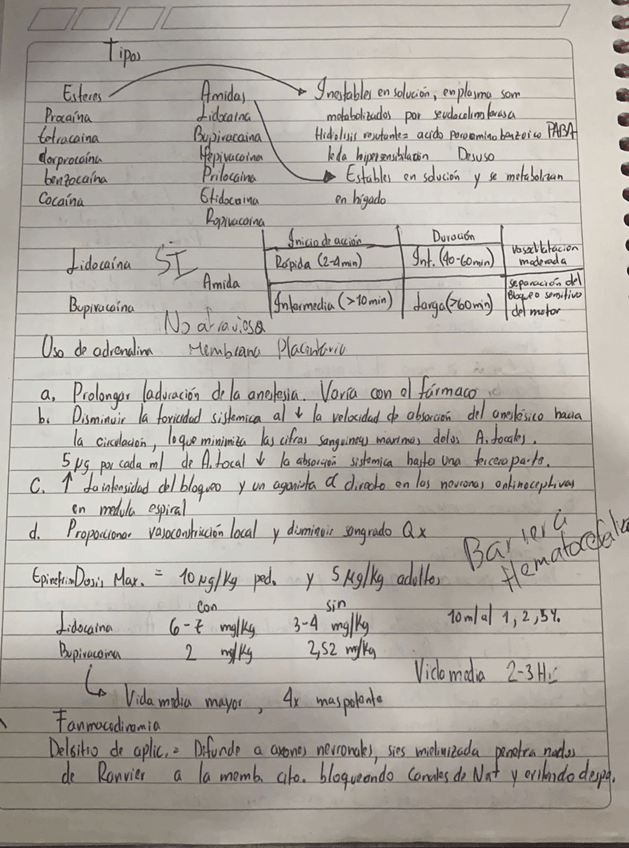 Tipos
Esteres Amidas Inestables en solución, en plasma som
Procaína Lidocaina metabolizados por seudocolinesterasa
tetracaina Bupivacaina Hidrolisis resutante= acido paraaminobenzoico PABA
clorprocaína Mepivacaina leda hipersensibilación Desuso
benzocaína Prilocaina Estables en solución y se metabolizan
Cocaína Etidocaina en hígado
Ropivacaina
Inicio de acción Duración
Lidocaína SI Amida Rápida (2-4min) Int. (40-60min) vasodilatacion moderada
Bupivacaína Intermedia (>10min) Larga (>60min) separación del Bloqueo sensitivo del motor
No atraviesa
Uso de adrenalina Membrana Placentario
a. Prolongar la duración de la anestesia. Varía con el fármaco
b. Disminuir la toxicidad sistemica al ↓ la velocidad de absorción del anestésico hacia
la circulación, lo que minimiza las cifras sanguineas maximas de los A. locales.
5 µg por cada ml de A. local ↓ la absorción sistemica hasta una tercera parte.
C. ↑ La intensidad del bloqueo y un agonista α directo en las neuronas antinoceptivas
en medula espiral
d. Proporcionar vasocontricción local y disminuir sangrado Qx
Barrera
Hematocefalica
Epinefrin Dosis Max. = 10 µg/kg ped. y 5 µg/kg adultos
con sin
Lidocaína 6-7 mg/kg 3-4 mg/kg 10ml al 1, 2, 5%
Bupivacaína 2 mg/kg 2,52 mg/kg
Vida media 2-3 Hs
↳ Vida media mayor, 4x mas potente
Farmacodinamia
Del sitio de aplic.= Difunde a axones neuronales, si es mielinizada penetra nodos
de Ranvier a la memb. cito. bloqueando Canales de Na+ y evitando despo.